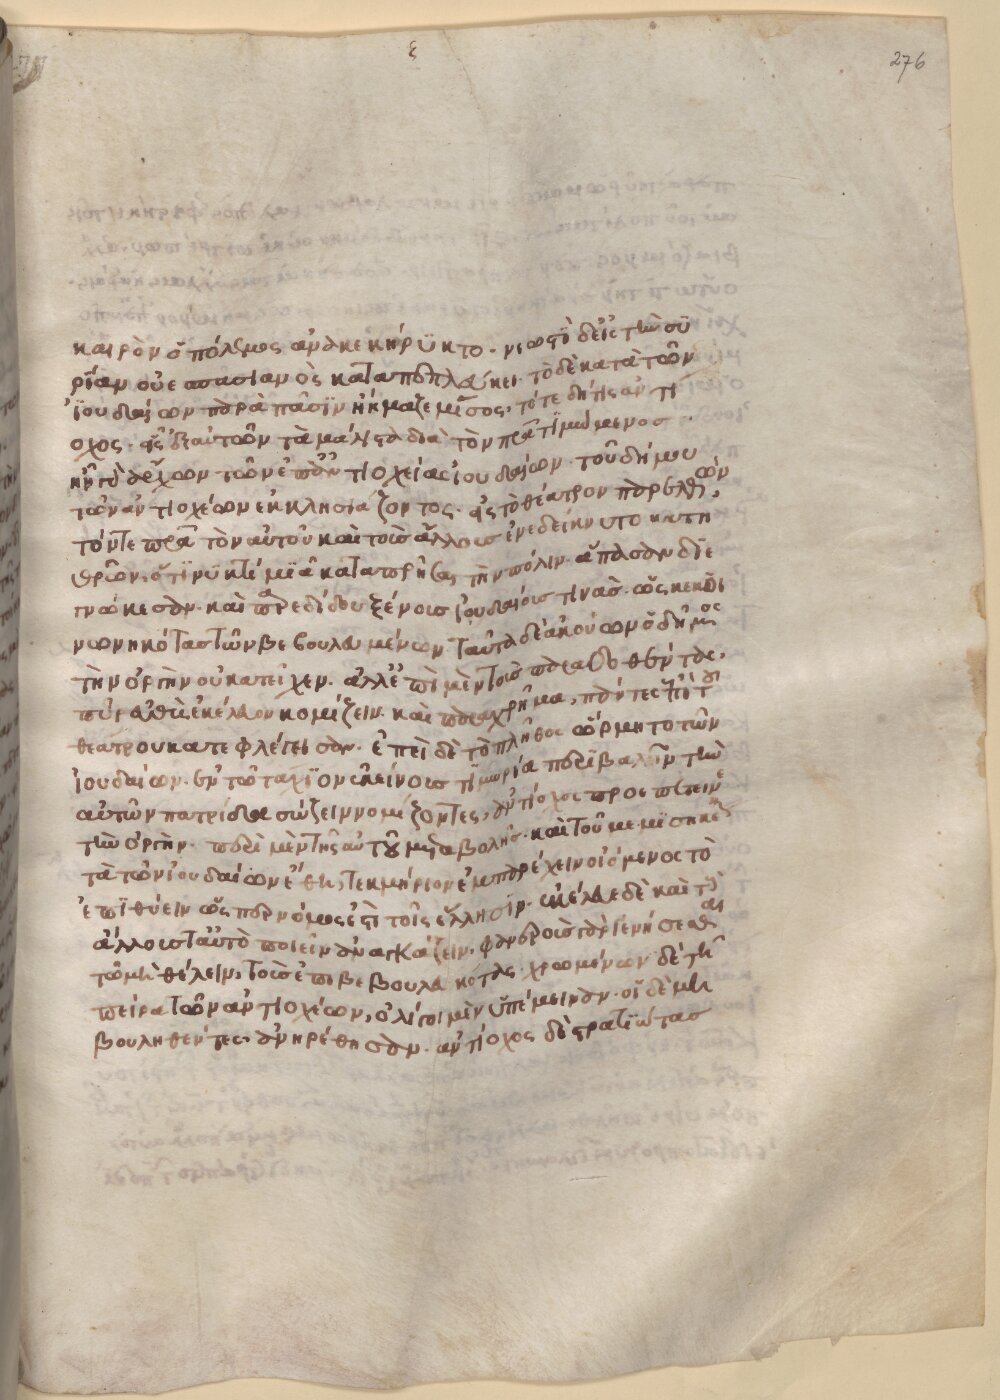 ξ
276
καιρὸν ὁ πόλεμος ἀνακεκήρυκτο· νεωστὶ δὲ εἰς τὴν συ
ρίαν οὐεσπασιανὸς καταπεπλεύκει· τὸ δὲ κατὰ τῶν
ἰουδαίων παρὰ πᾶσιν ἤκμαζε μῖσος, τότε δή τις ἀντί
οχος· εἷς δὲ αὐτῶν τὰ μάλιστα διὰ τὸν πρα τιμώμενος·
ἦν γὰρ ἄρχων τῶν ἐπ' ἀντιοχείας ἰουδαίων· τοῦ δήμου
τῶν ἀντιοχέων ἐκκλησιάζοντος· εἰς τὸ θέατρον παρελθὼν,
τόν τε πρα τὸν αὐτοῦ καὶ τοὺς ἄλλους ἐνεδείκνυτο κατη
γορῶν, ὅτι νυκτὶ μιᾶ καταπρῆσαι τὴν πόλιν ἅπασαν διε
γνώκεσαν· καὶ παρεδίδου ξένους ἰουδαίους τινὰς· ὡς κεκοι
νωνηκότας τῶν βεβουλευμένων· ταῦτα δὲ ἀκούων ὁ δῆμος
τὴν ὀργὴν οὐ κατεῖχεν· ἀλλ' ἐπὶ μὲν τοὺς παραδοθέντας,
πῦρ εὐθὺς ἐκέλευον κομίζειν· καὶ παραχρῆμα, πάντες ἐπὶ τοῦ
θεάτρου κατεφλέγησαν· ἐπεὶ δὲ τὸ πλῆθος ὥρμητο τῶν
ἰουδαίων· ἐν τῶ τάχιον ἐκείνοις τιμωρία περιβαλεῖν τὴν
αὐτῶν πατρίδα σώζειν νομίζοντες, ἀντίοχος προσεπέτεινε
τὴν ὀργὴν· περὶ μὲν τῆς αὐτοῦ μεταβολῆς· καὶ τοῦ μεμισηκέναι
τὰ τῶν ἰουδαίων ἔθη, τεκμήριον ἐμπαρέχειν οἰόμενος τὸ
ἐπιθύειν ὥσπερ νόμος ἐστὶ τοῖς ἕλλησιν· ἐκέλευε δὲ καὶ τοὺς
ἄλλους ταὐτὸ ποιεῖν ἀναγκάζειν· φανεροὺς γὰρ γενήσεσθαι
τῶ μὴ θέλειν, τοὺς ἐπιβεβουλευκότας· χρωμένων δὲ τῆ
πείρα τῶν ἀντιοχέων, ὀλίγοι μὲν ὑπέμειναν· οἱ δὲ μὴ
βουληθέντες ἀνηρέθησαν· ἀντίοχος δὲ στρατιώτας